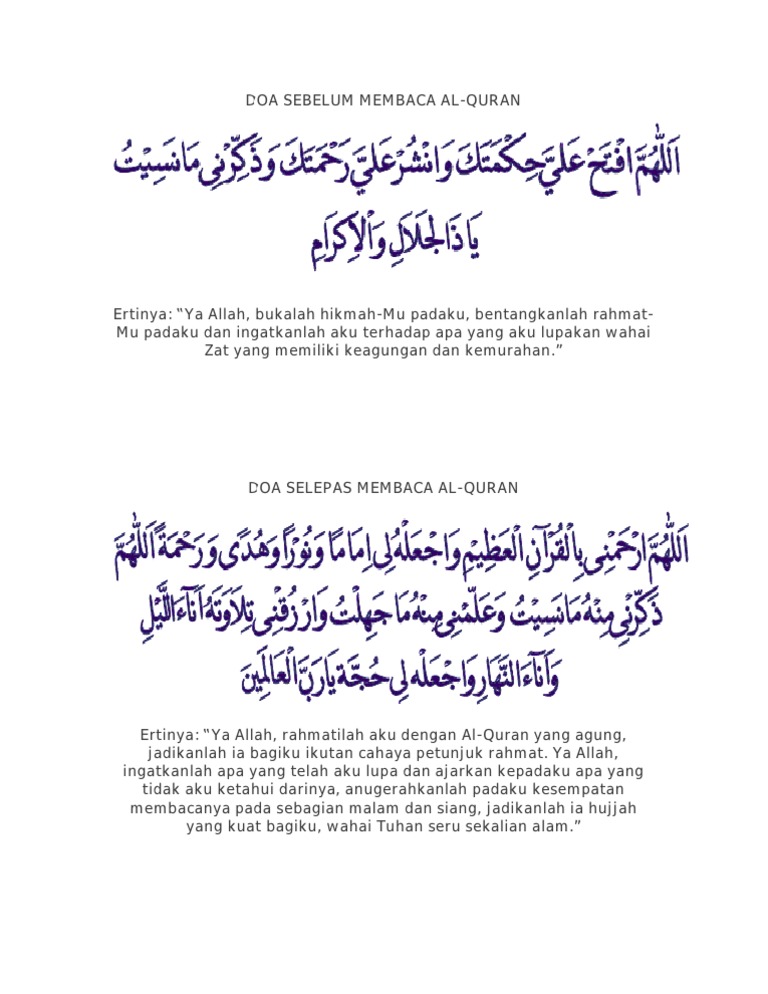 DOA SEBELUM MEMBACA AL-QURAN
اَللّٰهُمَّ افْتَحْ عَلَيَّ حِكْمَتَكَ وَانْشُرْ عَلَيَّ رَحْمَتَكَ وَذَكِّرْنِى مَانَسِيْتُ
يَا ذَالْجَلَالِ وَاْلاِكْرَامِ
Ertinya: “Ya Allah, bukalah hikmah-Mu padaku, bentangkanlah rahmat-
Mu padaku dan ingatkanlah aku terhadap apa yang aku lupakan wahai
Zat yang memiliki keagungan dan kemurahan.”
DOA SELEPAS MEMBACA AL-QURAN
اَللّٰهُمَّ ارْحَمْنِى بِالْقُرْآنِ الْعَظِيْمِ وَاجْعَلْهُ لِى اِمَامًا وَنُوْرًا وَهُدًى وَرَحْمَةً اَللّٰهُمَّ
ذَكِّرْنِى مِنْهُ مَانَسِيْتُ وَعَلِّمْنِى مِنْهُ مَا جَهِلْتُ وَارْزُقْنِى تِلَاوَتَهُ اَنَآءَ اللَّيْلِ
وَاَنَآءَ النَّهَارِ وَاجْعَلْه لِى حُجَّة يَارَبَّ الْعَالَمِينَ
Ertinya: “Ya Allah, rahmatilah aku dengan Al-Quran yang agung,
jadikanlah ia bagiku ikutan cahaya petunjuk rahmat. Ya Allah,
ingatkanlah apa yang telah aku lupa dan ajarkan kepadaku apa yang
tidak aku ketahui darinya, anugerahkanlah padaku kesempatan
membacanya pada sebagian malam dan siang, jadikanlah ia hujjah
yang kuat bagiku, wahai Tuhan seru sekalian alam.”